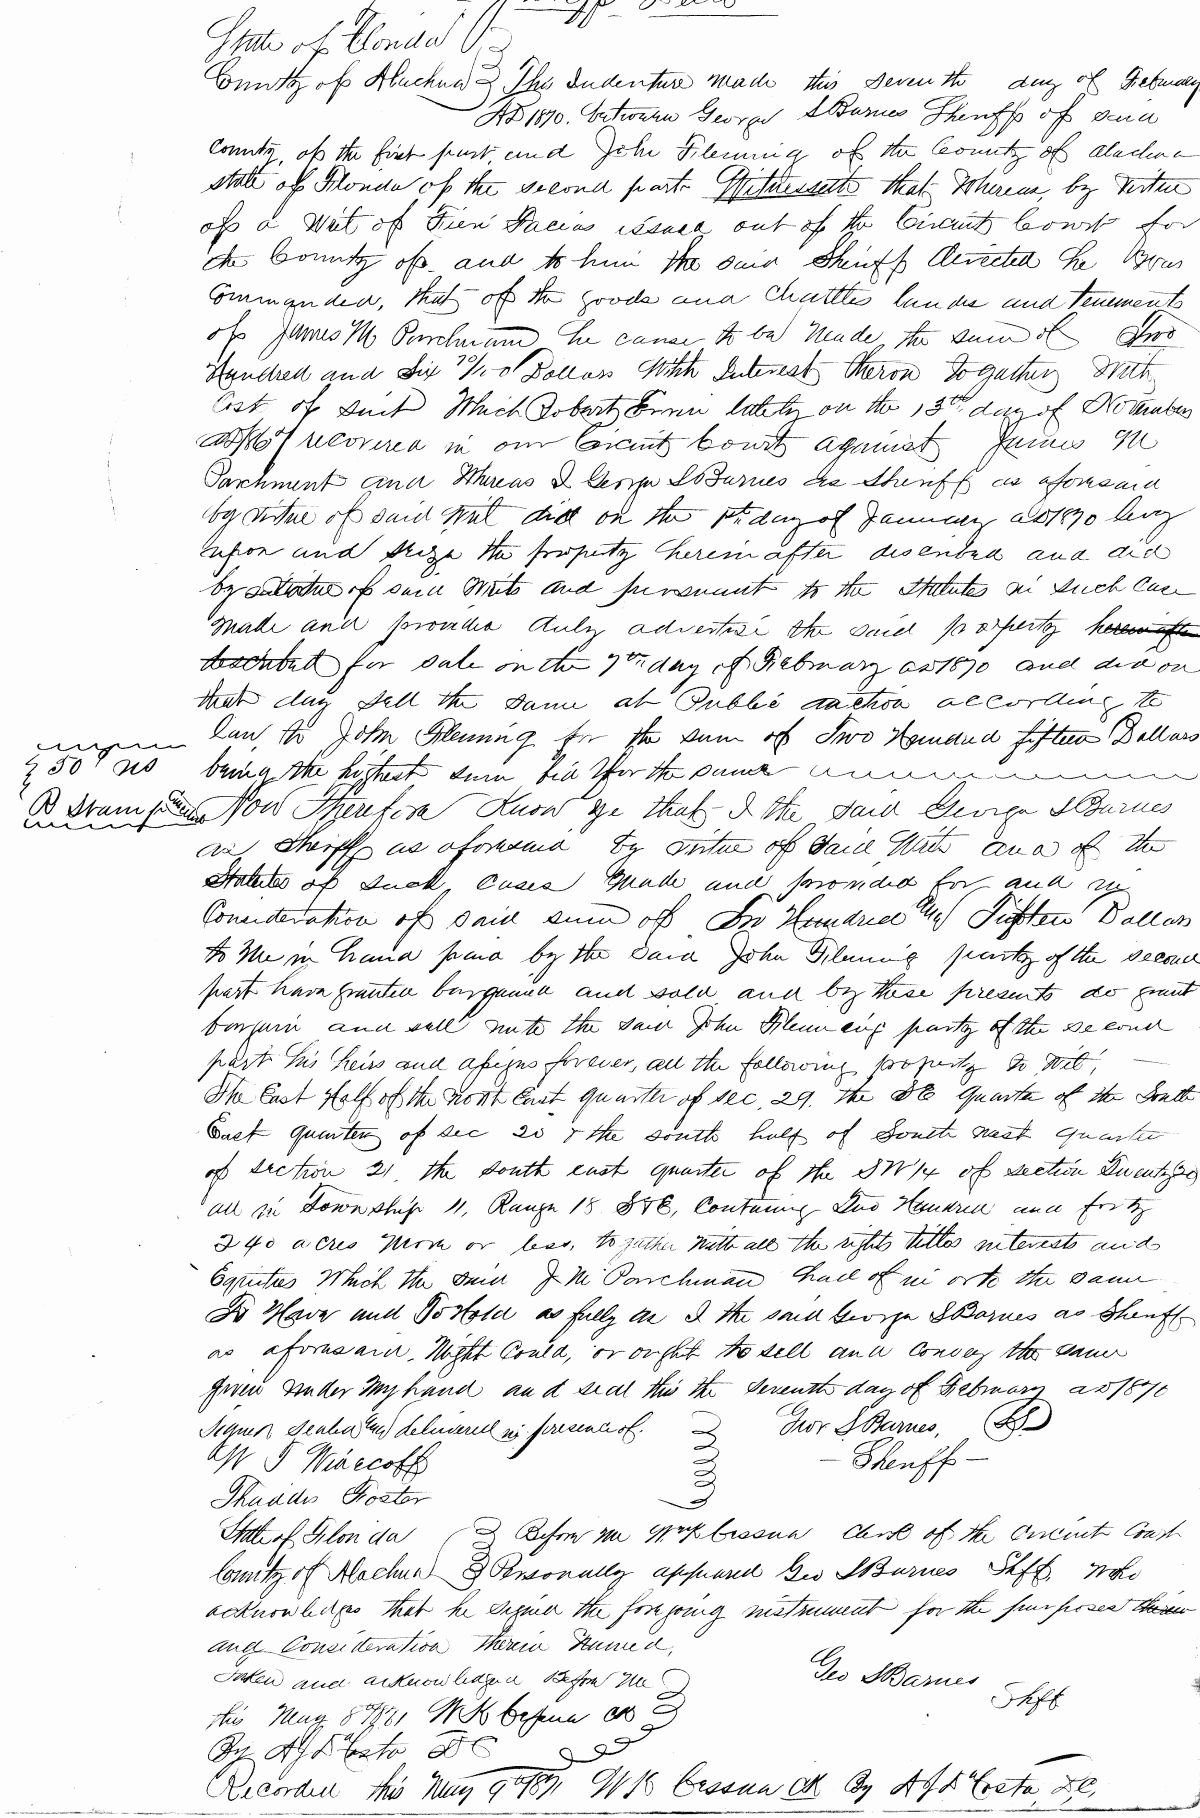 Sheriff Deed
State of Florida
County of Alachua This Indenture made this seventh day of February
AD 1870, between George S Barnes Sheriff of said
County, of the first part, and John Fleming of the County of Alachua
state of Florida of the second part Witnesseth that Whereas, by virtue
of a Writ of Fieri Facias issued out of the Circuit Court for
the County of and to him the said Sheriff directed he was
Commanded, that of the goods and chattles lands and tenements
of James M Parchman he cause to be made the sum of Two
Hundred and Six 70/100 Dollars With Interest theron together With
Cost of suit Which Robert Ervin lately on the 13th day of November
recovered in our Circuit Court against James M
Parchment and Whereas I George S Barnes as Sheriff as aforesaid
by virtue of said Writ did on the 1st day of January AD 1870 levy
upon and seize the property herein after described and did
by virtue of said Writs and pursuant to the statutes in such Case
made and provided duly advertise the said property herein after
described for sale on the 7th day of February AD 1870 and did on
that day sell the same at Public auction according to
law, to John Fleming for the sum of Two Hundred fifteen Dollars
being the highest sum bid for the same
50 
R Stamp
Now Therefore Know ye that I the said George S Barnes
as Sheriff as aforesaid by virtue of said Writs and of the
Statutes of such cases made and provided for and in
Consideration of said sum of Two Hundred and Fifteen Dollars
to Me in hand paid by the said John Fleming party of the second
part have granted bargained and sold and by these presents do grant
bargain and sell unto the said John Flemming party of the second
part his heirs and assigns forever, all the following property to Wit,
The East Half of the North East quarter of sec. 29. the SE quarter of the South
East quarter of sec 20 & the south half of South west quarter
of section 21, the south east quarter of the SW 1/4 of section Twenty 20
all in Township 11, Range 18 S & E, Containing Two Hundred and forty
240 acres More or less, together with all the rights titles interests and
Equities Which the said J M Parchman had of in or to the same
To Have and To Hold as fully as I the said George S Barnes as Sheriff
as aforesaid, Might Could, or ought to sell and convey the same
given under My hand and seal this the seventh day of February AD 1870
Signed sealed and delivered in presence of. Geor S Barnes, LS
W J Wiaecoff Sheriff
Thaddis Foster
State of Florida Before me Wm K Cessna clerk of the Circuit Court
County of Alachua Personally appeared Geo S Barnes Shff, who
acknowledges that he signed the forgoing instrument for the purposes therein
and Consideration therein named,
Taken and acknowledged Before Me Geo S Barnes
this May 8th 1871 W K Cessna Clk Shff
By A J D'Costa DC
Recorded this May 9th 1871 W K Cessna Clk By A J D'Costa, D.C.